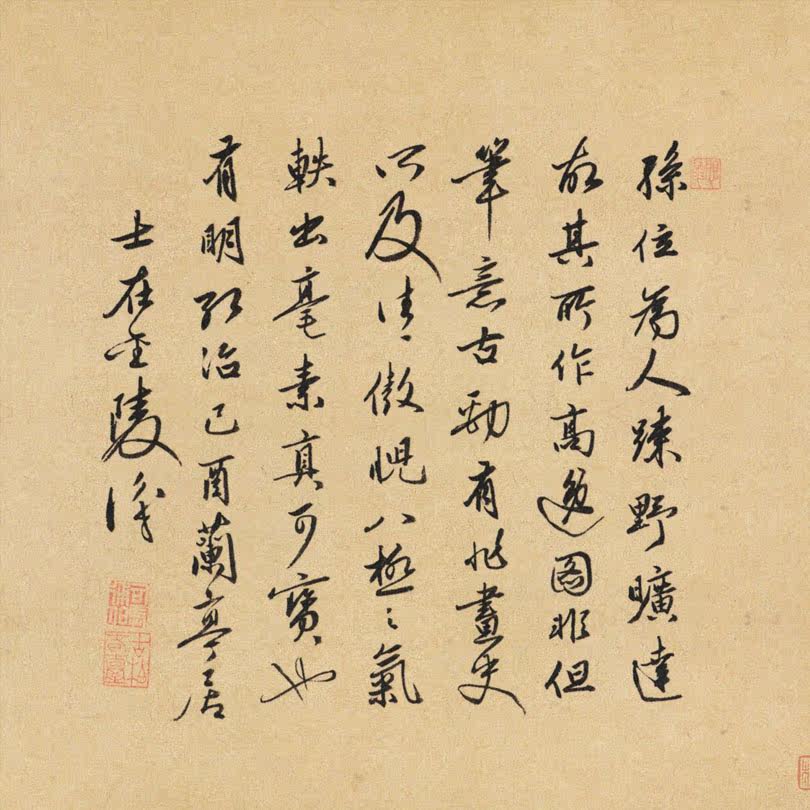 孫位為人疎野曠達
故其所作高逸圖非但
筆意古勁有非畫史
所及往々傲睨八極之氣
軼出毫素真可寶也
有明弘治己酉蘭亭居
士在金陵識